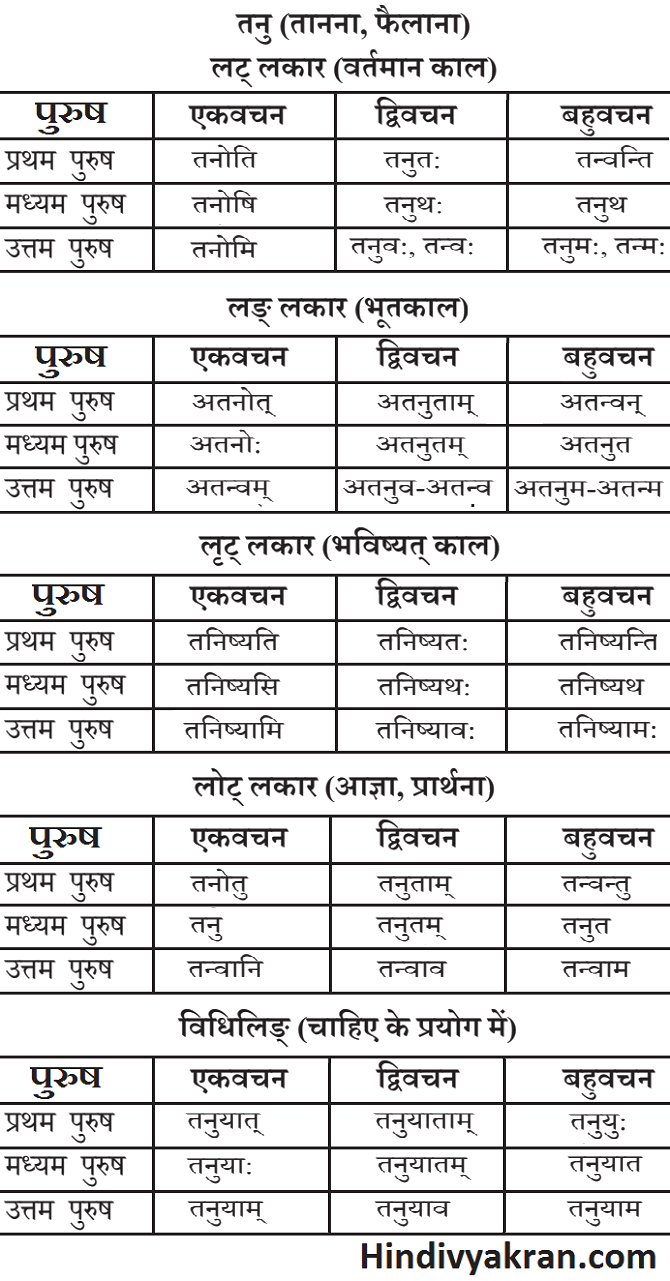 तनु (तानना, फैलाना)
लट् लकार (वर्तमान काल)
पुरुष एकवचन द्विवचन बहुवचन
प्रथम पुरुष तनोति तनुतः तन्वन्ति
मध्यम पुरुष तनोषि तनुथः तनुथ
उत्तम पुरुष तनोमि तनुवः, तन्वः तनुमः, तन्मः
लङ् लकार (भूतकाल)
पुरुष एकवचन द्विवचन बहुवचन
प्रथम पुरुष अतनोत् अतनुताम् अतन्वन्
मध्यम पुरुष अतनोः अतनुतम् अतनुत
उत्तम पुरुष अतन्वम् अतनुव-अतन्व अतनुम-अतन्म
लृट् लकार (भविष्यत् काल)
पुरुष एकवचन द्विवचन बहुवचन
प्रथम पुरुष तनिष्यति तनिष्यतः तनिष्यन्ति
मध्यम पुरुष तनिष्यसि तनिष्यथः तनिष्यथ
उत्तम पुरुष तनिष्यामि तनिष्यावः तनिष्यामः
लोट् लकार (आज्ञा, प्रार्थना)
पुरुष एकवचन द्विवचन बहुवचन
प्रथम पुरुष तनोतु तनुताम् तन्वन्तु
मध्यम पुरुष तनु तनुतम् तनुत
उत्तम पुरुष तन्वानि तन्वाव तन्वाम
विधिलिङ् (चाहिए के प्रयोग में)
पुरुष एकवचन द्विवचन बहुवचन
प्रथम पुरुष तनुयात् तनुयाताम् तनुयुः
मध्यम पुरुष तनुयाः तनुयातम् तनुयात
उत्तम पुरुष तनुयाम् तनुयाव तनुयाम
Hindivyakran.com